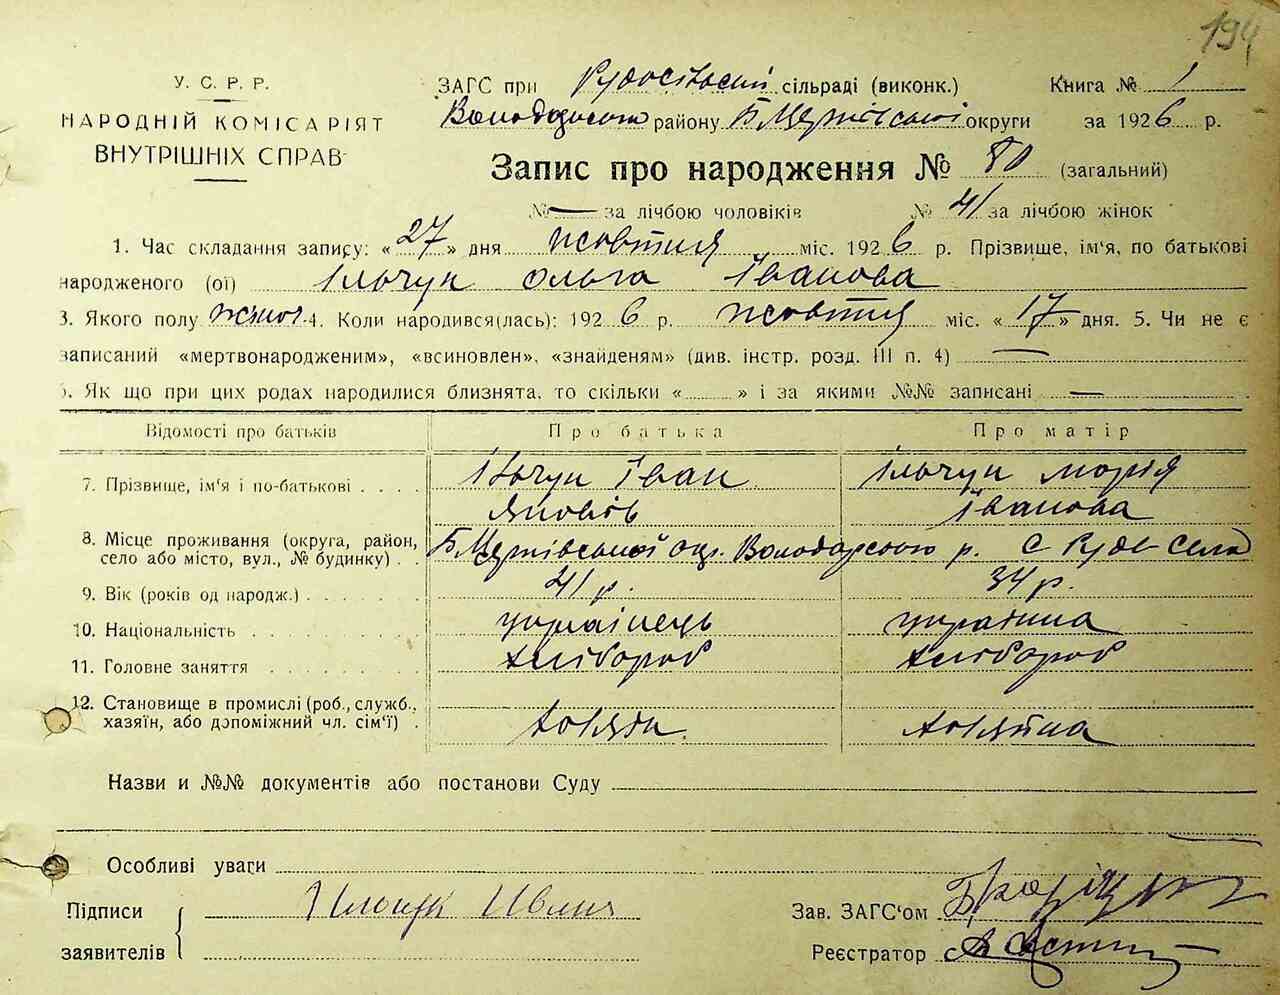 194
У. С. Р. Р.
НАРОДНІЙ КОМІСАРІЯТ
ВНУТРІШНІХ СПРАВ
ЗАГС при Рудосільскій сільраді (виконк.) Книга № 1
Володарского району Б Церківської округи за 1926 р.
Запис про народження № 80 (загальний)
№ — за лічбою чоловіків № 41 за лічбою жінок
1. Час складання запису: «27» дня жовтня міс. 1926 р. Прізвище, ім'я, по батькові
народженого (ої) Ільчук Ольга Іванова
3. Якого полу жіноч. 4. Коли народився(лась): 1926 р. жовтня міс. «17» дня. 5. Чи не є
записаний «мертвонародженим», «всиновлен», «знайденям» (див. інстр. розд. III п. 4) —
Як що при цих родах народилися близнята, то скільки « » і за якими №№ записані —
Відомості про батьків Про батька Про матір
7. Прізвище, ім'я і по-батькові Ільчук Іван Ільчук Марія
Яковів Іванова
8. Місце проживання (округа, район,
село або місто, вул., № будинку) Б Церківської окр. Володарського р. С Руде-Село
9. Вік (років од народж.) 41 р. 34 р.
10. Національність українець українка
11. Головне заняття хлібороб хлібороб
12. Становище в промислі (роб., служб.,
хазяїн, або допоміжний чл. сім'ї) хозяїн хозяйка
Назви и №№ документів або постанови Суду
Особливі уваги
Підписи
заявителів
Илчук Иван
Зав. ЗАГС'ом
Реєстратор